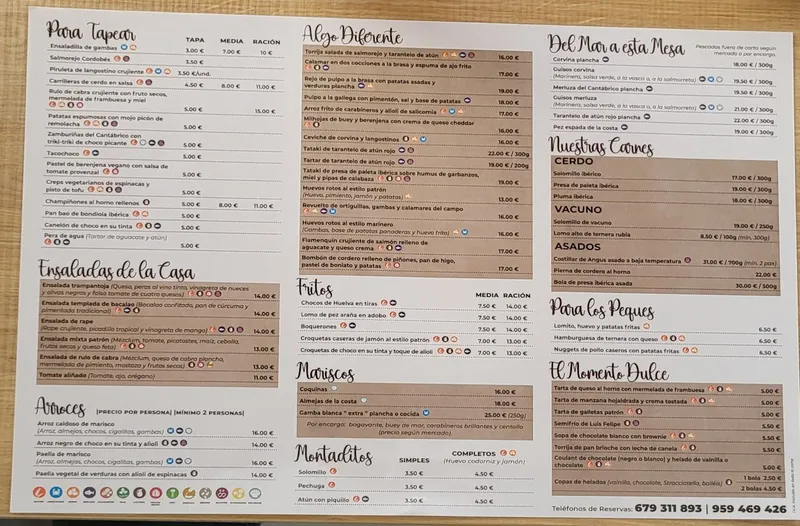 Para Tapear
TAPA MEDIA RACIÓN
Ensaladilla de gambas 3.00 € 7.00 € 10 €
Salmorejo Cordobés 3.50 €
Piruleta de langostino crujiente 3.50 €/und.
Carrilleras de cerdo en salsa 4.50 € 8.00 € 11.00 €
Rulo de cabra crujiente con fruto secos,
mermelada de frambuesa y miel
5.00 € 15.00 €
Patatas espumosas con mojo picón de
remolacha 5.00 €
Zamburiñas del Cantábrico con
triki-triki de choco picante 5.00 €
Tacochoco 5.00 €
Pastel de berenjena vegano con salsa de
tomate provenzal 5.00 €
Creps vegetarianos de espinacas y
pisto de tofu 5.00 €
Champiñones al horno rellenos 5.00 € 8.00 € 11.00 €
Pan bao de bondiola ibérica 5.00 €
Canelón de choco en su tinta 5.00 €
Pera de agua (Tartar de aguacate y atún)
5.00 €
Ensaladas de la Casa
Ensalada trampantoja (Queso, peras al vino tinto, vinagreta de nueces
y olivas negras y falso tomate de cuatro quesos) 14.00 €
Ensalada templada de bacalao (Bacalao confitado, pan de cúrcuma y
pimentada tradicional) 14.00 €
Ensalada de rape
(Rape crujiente, picadillo tropical y vinagreta de mango) 14.00 €
Ensalada mixta patrón (Mézclum, tomate, picatostes, maíz, cebolla,
frutas secos y queso feta) 13.00 €
Ensalada de rulo de cabra (Mézclum, queso de cabra plancha,
mermelada de pimiento, mostaza y frutas secos) 13.00 €
Tomate aliñado (Tomate, ajo, orégano) 11.00 €
Arroces |PRECIO POR PERSONA| |MÍNIMO 2 PERSONAS|
Arroz caldoso de marisco
(Arroz, almejas, chocos, cigalitas, gambas) 16.00 €
Arroz negro de choco en su tinta y alioli 14.00 €
Paella de marisco
(Arroz, almejas, chocos, cigalitas, gambas) 16.00 €
Paella vegetal de verduras con alioli de espinacas 14.00 €
Algo Diferente
Torrija salada de salmorejo y tarantelo de atún 16.00 €
Calamar en dos cocciones a la brasa y espuma de ajo frito
17.00 €
Rejo de pulpo a la brasa con patatas asadas y
verduras plancha 19.00 €
Pulpo a la gallega con pimentón, sal y base de patatas 18.00 €
Arroz frito de carabineros y alioli de salicornia 17.00 €
Milhojas de buey y berenjena con crema de queso cheddar
16.00 €
Ceviche de corvina y langostinos 16.00 €
Tataki de tarantelo de atún rojo 22.00 € / 300g
Tartar de tarantelo de atún rojo 19.00 € / 200g
Tataki de presa de paleta ibérica sobre humus de garbanzos,
miel y pipas de calabaza 19.00 €
Huevos rotos al estilo patrón
(Huevo, pimiento, jamón y patatas) 13.00 €
Revuelto de ortiguillas, gambas y calamares del campo
16.00 €
Huevos rotos al estilo marinero
(Gambas, base de patatas panaderas y huevo frito) 16.00 €
Flamenquín crujiente de salmón relleno de
aguacate y queso crema 17.00 €
Bombón de cordero relleno de piñones, pan de higo,
pastel de boniato y patatas 17.00 €
Fritos
MEDIA RACIÓN
Chocos de Huelva en tiras 7.50 € 14.00 €
Loma de pez araña en adobo 7.50 € 14.00 €
Boquerones 7.50 € 14.00 €
Croquetas caseras de jamón al estilo patrón 7.00 € 13.00 €
Croquetas de choco en su tinta y toque de alioli 7.00 € 13.00 €
Mariscos
Coquinas 16.00 €
Almejas de la costa 18.00 €
Gamba blanca " extra " plancha o cocida 25.00 € (250g)
Por encargo: bogavante, buey de mar, carabineros brillantes y centollo
(precio según mercado).
Montaditos
SIMPLES COMPLETOS
(Huevo codorniz y jamón)
Solomillo 3.50 € 4.50 €
Pechuga 3.50 € 4.50 €
Atún con piquillo 3.50 € 4.50 €
Del Mar a esta Mesa
Pescados fuera de carta según
mercado o por encargo.
Corvina plancha 18.00 € / 300g
Cuisos corvina
(Marinera, salsa verde, a la vasca o, a la salmorreta) 19.50 € / 300g
Merluza del Cantábrico plancha 19.50 € / 300g
Cuisos merluza
(Marinera, salsa verde, a la vasca o, a la salmorreta) 21.00 € / 300g
Tarantelo de atún rojo plancha 22.00 € / 300g
Pez espada de la costa 19.00 € / 300g
Nuestras Carnes
CERDO
Solomillo ibérico 17.00 € / 300g
Presa de paleta ibérica 19.00 € / 300g
Pluma ibérica 18.00 € / 300g
VACUNO
Solomillo de vacuno 19.00 € / 250g
Lomo alto de ternera rubia 8.50 € / 100g (mín. 300g)
ASADOS
Costillar de Angus asado a baja temperatura 31.00 € / 700g (mín. 2 pax)
Pierna de cordero al horno 22.00 €
Bola de presa ibérica asada 30.00 € / 500g
Para los Peques
Lomito, huevo y patatas fritas 6.50 €
Hamburguesa de ternera con queso 6.50 €
Nuggets de pollo caseros con patatas fritas 6.50 €
El Momento Dulce
Tarta de queso al horno con mermelada de frambuesa 5.00 €
Tarta de manzana hojaldrada y crema tostada 5.00 €
Tarta de galletas patrón 5.00 €
Semifrío de Luis Felipe 5.00 €
Sopa de chocolate blanco con brownie 5.00 €
Torrija de pan brioche con leche de canela 5.00 €
Coulant de chocolate (negro o blanco) y helado de vainilla o
chocolate 5.00 €
Copas de helados (vainilla, chocolate, Stracciatella, bailéis) 1 bola 2.50 €
2 bolas 4.50 €
Teléfonos de Reservas: 679 311 893 | 959 469 426